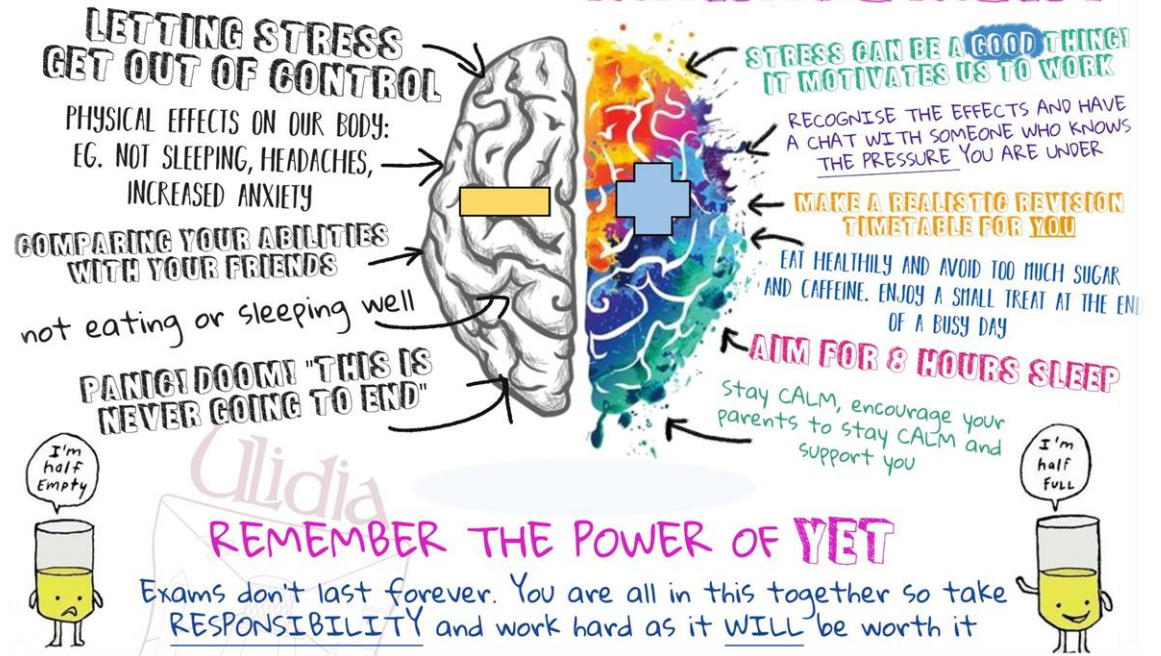 LETTING STRESS
GET OUT OF CONTROL
PHYSICAL EFFECTS ON OUR BODY:
EG. NOT SLEEPING, HEADACHES,
INCREASED ANXIETY
COMPARING YOUR ABILITIES
WITH YOUR FRIENDS
not eating or sleeping well
PANIC! DOOM! "THIS IS
NEVER GOING TO END"
STRESS CAN BE A GOOD THING!
IT MOTIVATES US TO WORK
RECOGNISE THE EFFECTS AND HAVE
A CHAT WITH SOMEONE WHO KNOWS
THE PRESSURE YOU ARE UNDER
MAKE A REALISTIC REVISION
TIMETABLE FOR YOU
EAT HEALTHILY AND AVOID TOO MUCH SUGAR
AND CAFFEINE. ENJOY A SMALL TREAT AT THE END
OF A BUSY DAY
AIM FOR 8 HOURS SLEEP
Stay CALM, encourage your
parents to stay CALM and
support you
I'm
half
Empty
I'm
half
FULL
Ulidia
REMEMBER THE POWER OF YET
Exams don't last forever. You are all in this together so take
RESPONSIBILITY and work hard as it WILL be worth it